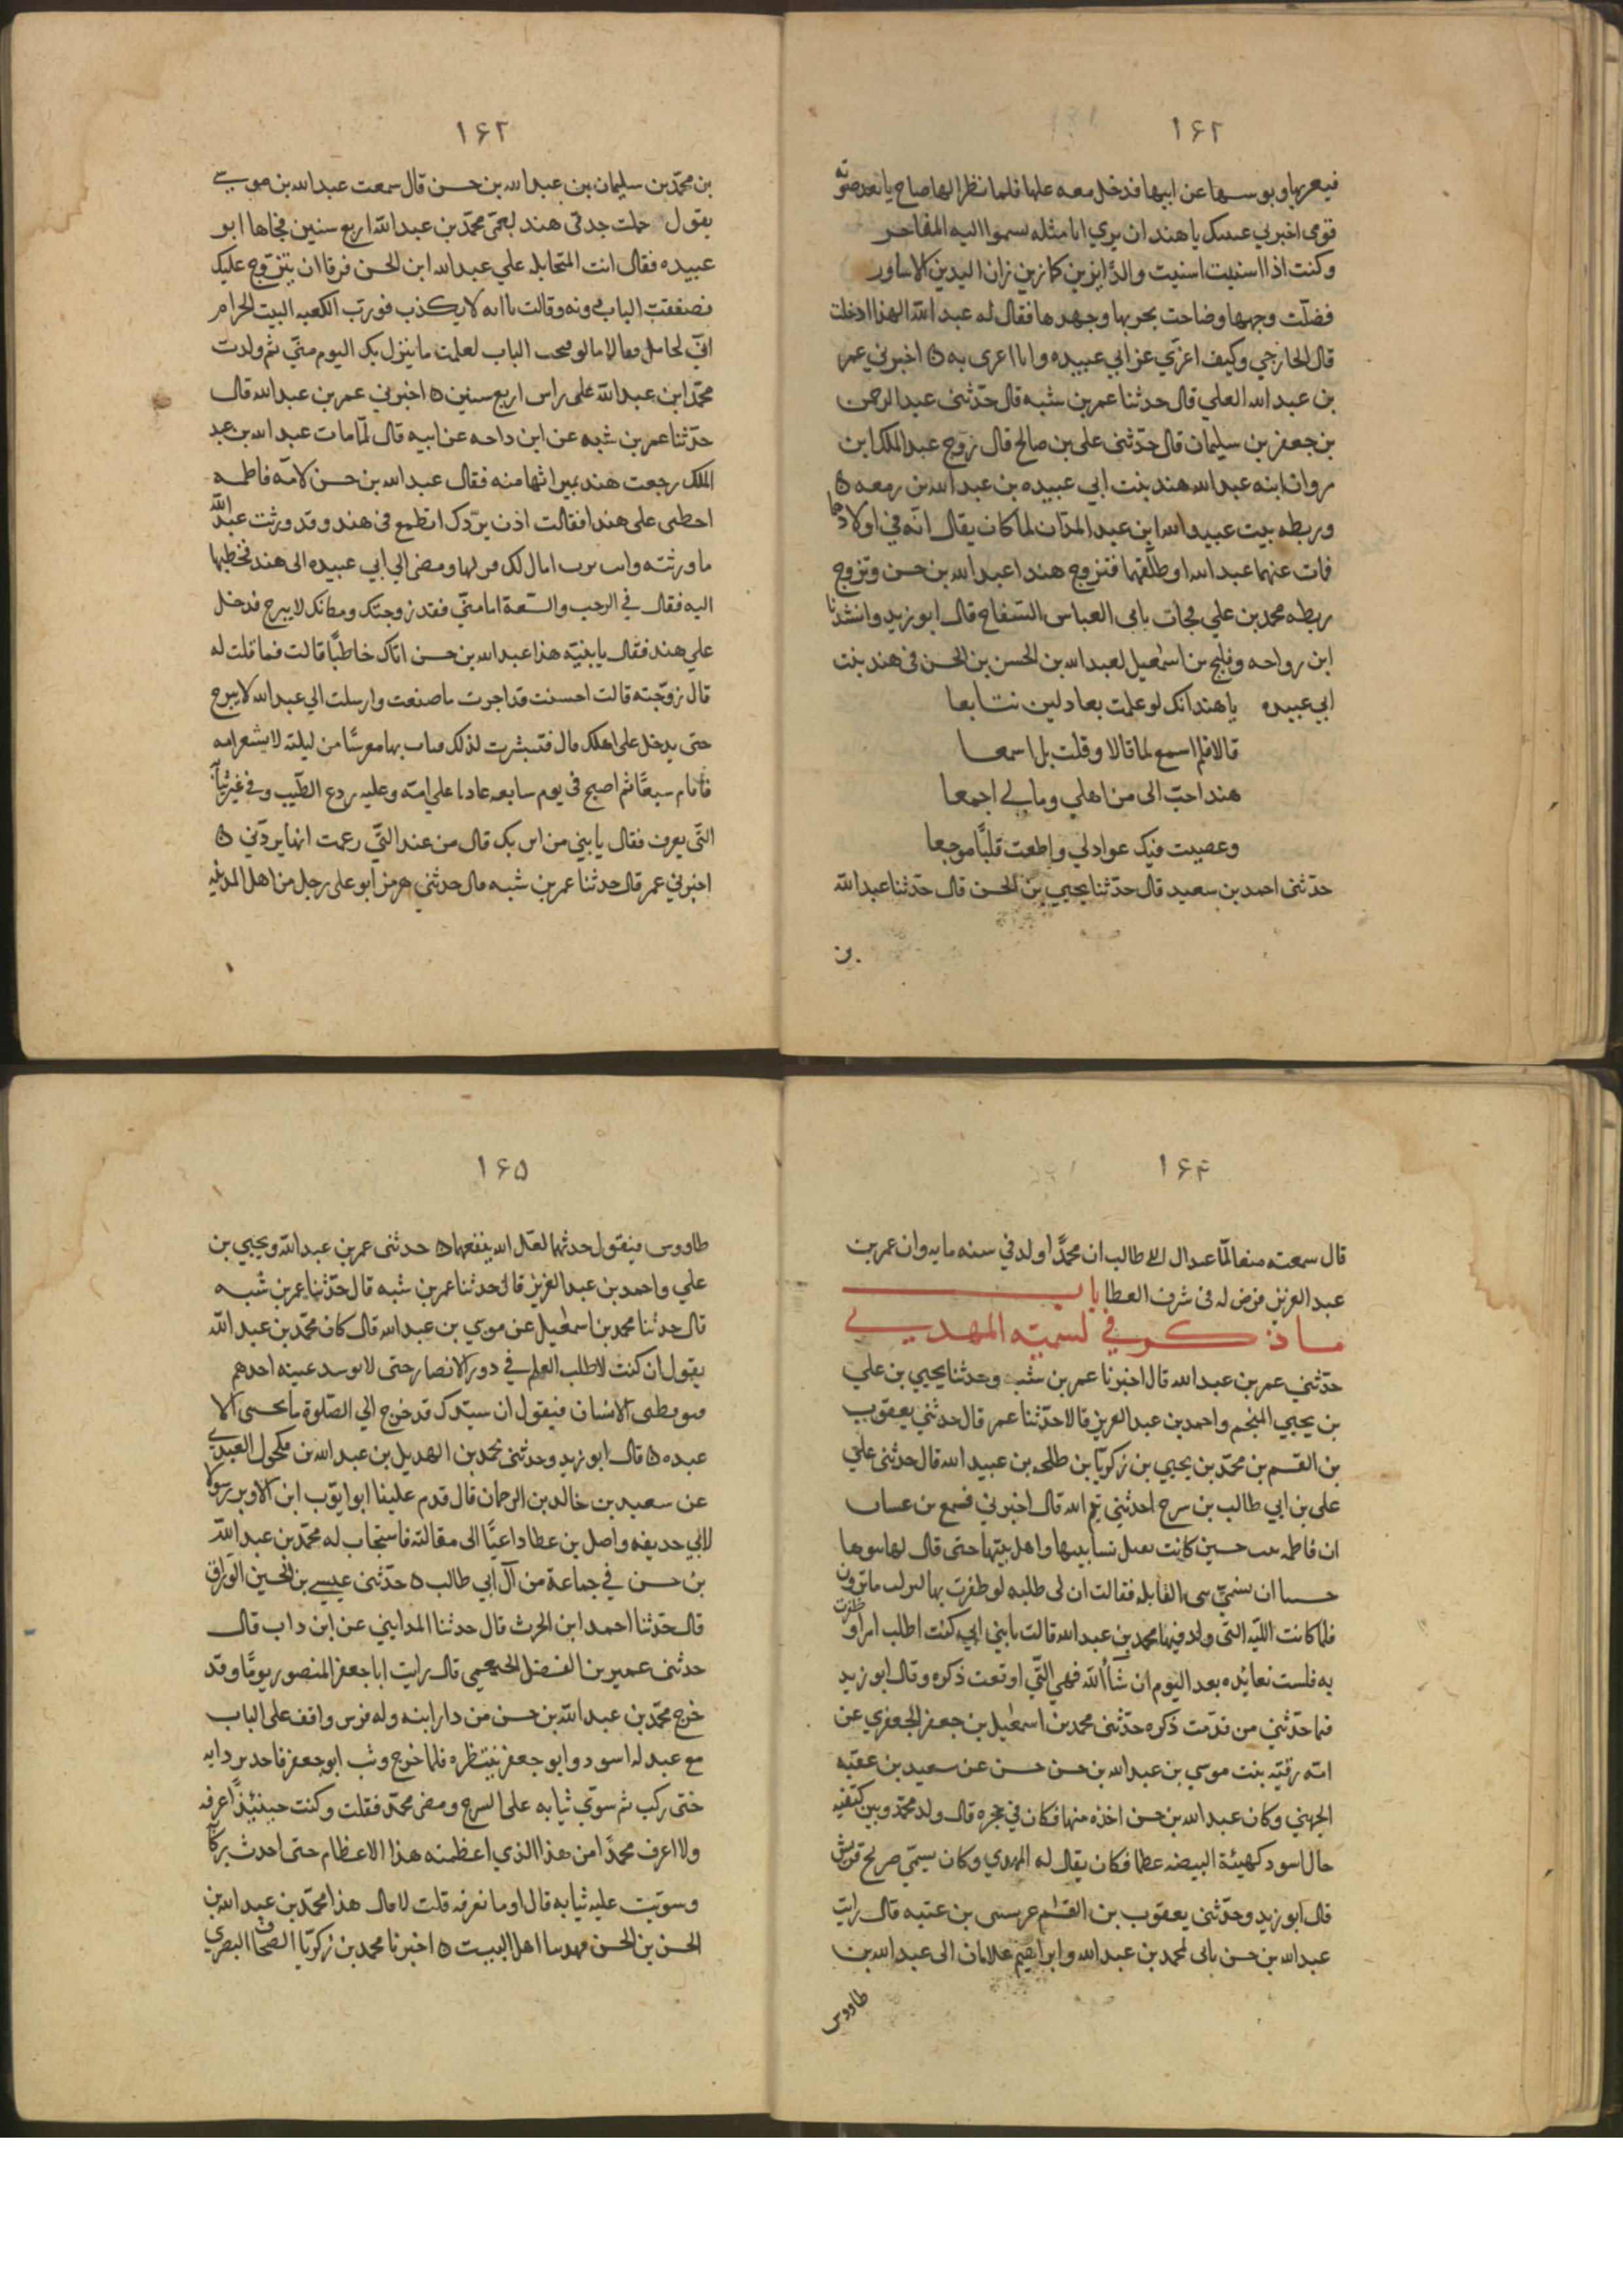 ١٦٢
فيعزيها ويوسيها عن ابيها فدخل معه عليها فلما نظر اليها صاح بابعد صوته
قومي اخبري عينيك يا هند ان تري ابا مثله يسموا اليه المفاخر
وكنت اذا اسنيت اسنيت والدا يزين كما زين اليدين الاساور
فصكت وجهها وصاحت بحربها وجهدها فقال له عبد الله الهذا ادخلت
قال الخارجي وكيف اعزي عن ابي عبيده وانا اعزى به ٥ اخبرني عمر
بن عبد الله العلي قال حدثنا عمر بن شبه قال حدثنى عبد الرحمن
بن جعفر بن سليمان قال حدثنى على بن صالح قال زوج عبد الملك ابن
مروان ابنه عبد الله هند بنت ابي عبيده بن عبد الله بن زمعه ٥
وريطه بيت عبيد الله ابن عبد المدان لما كان يقال انه في اولادهما
فمات عنهما عبد الله او طلقها فتزوج هندا عبد الله بن حسن وتزوج
ريطه محمد بن علي فجات بابى العباس السفاح قال ابو زيد وانشدنا
ابن رواحه وفليح بن اسمعيل لعبد الله بن الحسن بن الحسن فى هند بنت
ابي عبيده يا هند انك لو علمت بعادلين تتابعا
قالا فلم اسمع لما قالا وقلت بل اسمعا
هند احب الى من اهلي ومالي اجمعا
وعصيت فيك عوادلي واطعت قلبا موجعا
حدثنى احمد بن سعيد قال حدثنا يحيى بن الحسن قال حدثنا عبد الله
بن
١٦٣
بن محمد بن سليمان بن عبد الله بن حسن قال سمعت عبد الله بن موسى
يقول حملت جدتى هند بعمى محمد بن عبد الله اربع سنين فجاها ابو
عبيده فقال انت المتحابله علي عبد الله ابن الحسن فرقا ان يتزوج عليك
فصفقت الباب دونه وقالت يا ابه لا يكذب فورب الكعبه البيت الحرام
اني لحامل لو فتحت الباب لعلمت ما ينزل بك اليوم مني ثم ولدت
محمد ابن عبد الله على راس اربع سنين ٥ اخبرني عمر بن عبد الله قال
حدثنا عمر بن شبه عن ابن داحه عن ابيه قال لما مات عبد الله بن عبد
الملك رجعت هند بميراثها منه فقال عبد الله بن حسن لامه فاطمه
اخطبى على هندا فقالت اذن يردك اتطمع فى هند وقد ورثت عبد الله
ما ورثته وانت ترب لا مال لك فتركها ومضى الي ابي عبيده الى هند فخطبها
اليه فقال في الرحب والسعة اما منى فقد زوجتك ومكانك لا يبرح فدخل
علي هند فقال يا بنيه هذا عبد الله بن حسن اتاك خاطبا قالت فما قلت له
قال زوجته قالت احسنت قد اجرت ما صنعت وارسلت الي عبد الله لا يبرح
حتى يدخل على اهلك قال فتبشرت لذلك فبات بها معرسا من ليلته لا يشعر امه
فاقام سبعا ثم اصبح فى يوم سابعه غاديا علي امه وعليه ردع الطيب وفي غير ثيابه
التي يعرف فقال يا بني من اين بك قال من عند التي زعمت انها يردني ٥
اخبرني عمر قال حدثنا عمر بن شبه قال حدثني هرمز ابو على رجل من اهل المدينه
١٦٤
قال سمعته ان محمدا ولد في سنه مايه وان عمر بن
عبد العزيز فرض له فى شرف العطا باب
ما ذكر في تسميته المهدي
حدثني عمر بن عبد الله قال اخبرنا عمر بن شبه وحدثنا يحيي بن علي
بن يحيي المنجم واحمد بن عبد العزيز قالا حدثنا عمر قال حدثني يعقوب
بن القسم بن محمد بن يحيي بن زكريا بن طلحه بن عبيد الله قال حدثنى علي
على بن ابي طالب بن سرح احدثني تيم الله قال اخبرني فسمع بن غسان
ان فاطمه بنت حسين كانت تقبل نسا بيتها واهل بيتها حتى قال لها بنوها
خشينا ان نسمى بنى القابله فقالت ان لى طلبه لو ظفرت بها لتركت ما ترون
فلما كانت الليه التى ولد فيها محمد بن عبد الله قالت يا بني اني كنت اطلب امرا وظفرت
به فلست بعائده بعد اليوم ان شاالله فهي التي اوقعت ذكره وقال ابو زيد
فيما حدثني من قدمت ذكره حدثنى محمد بن اسمعيل بن جعفر الجعفري عن
امه رقيه بنت موسي بن عبد الله بن حسن حسن عن سعيد بن عقبه
الجهني وكان عبد الله بن حسن اخذه منها فكان في حجره قال ولد محمد وبين كتفيه
خال اسود كهيئة البيضه عظما فكان يقال له المهدي وكان يسمى صريح قريش
قال ابو زيد وحدثنى يعقوب بن القسم عن سى بن عتبه قال رايت
عبد الله بن حسن ياتى لمحمد بن عبد الله وابراهيم غلامان الى عبد الله بن
طاووس
١٦٥
طاووس فيقول حدثهما لعل الله ينفعهما ٥ حدثنى عمر بن عبد الله ويحيي بن
علي واحمد بن عبد العزيز قال حدثنا عمر بن شبه قال حدثنا عمر بن شبه
قال حدثنا محمد بن اسمعيل عن موسى بن عبد الله قال كان محمد بن عبد الله
يقول ان كنت لاطلب العلم في دور الانصار حتى لاتوسد عتبه احدهم
فيوقظنى الانسان فيقول ان سيدك قد خرج الي الصلوة ما يحسبنى الا
عبده ٥ قال ابو زيد وحدثنى محمد بن الهديل بن عبد الله بن مكحول العبدي
عن سعيد بن خالد بن الرحمان قال قدم علينا ابو ايوب ابن الاوبر رسولا
لابي حديفه واصل بن عطا داعيا الى مقالته فاستجاب له محمد بن عبد الله
بن حسن في جماعة من آل ابي طالب ٥ حدثنى عيسى بن الحسين الوراق
قال حدثنا احمد ابن الحرث قال حدثنا المدايني عن ابن داب قال
حدثنى عمير بن الفضل الخثعمي قال رايت ابا جعفر المنصور يوما وقد
خرج محمد بن عبد الله بن حسن من دار ابنه وله فرس واقف على الباب
مع عبد له اسود وابو جعفر ينتظره فلما خرج وثب ابو جعفر فاخذ بردايه
حتى ركب ثم سوي ثيابه على السرج ومضى محمد فقلت وكنت حينيذ اعرفه
ولا اعرف محمدا من هذا الذي اعظمته هذا الاعظام حتى اخذت بركابه
وسويت عليه ثيابه قال اوما تعرفه قلت لا قال هذا محمد بن عبد الله بن
الحسن بن الحسن مهدينا اهل البيت ٥ اخبرنا محمد بن زكريا الصحاف البصري